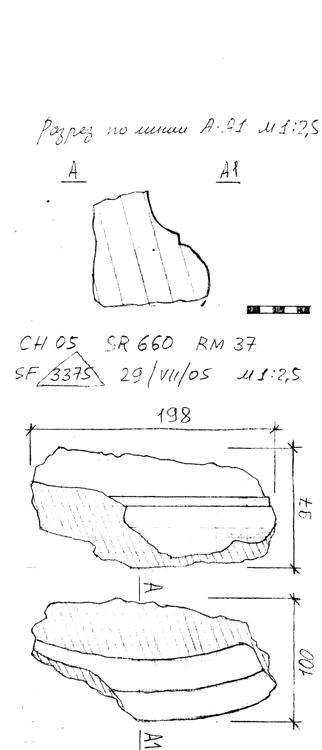 Разрез по линии А-А1 М1:2,5
А А1
CH 05 SR 660 RM 37
SF 3375 29/VII/05 М1:2,5
198
97
А
100
А1